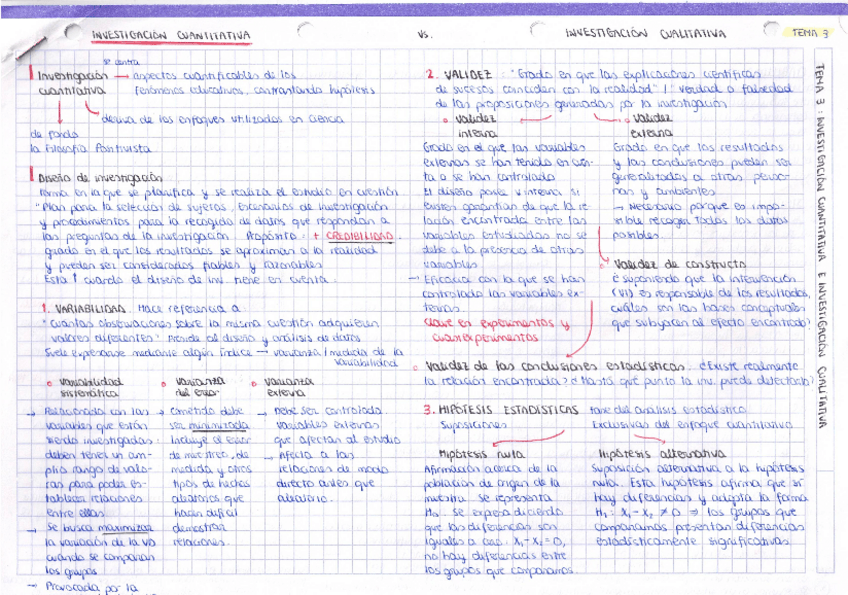 INVESTIGACIÓN CUANTITATIVA
vs.
INVESTIGACIÓN CUALITATIVA
TEMA 3
TEMA 3: INVESTIGACIÓN CUANTITATIVA E INVESTIGACIÓN CUALITATIVA
se centra
Investigación → aspectos cuantificables de los
cuantitativa fenómenos educativos, contrastando hipótesis
deriva de los enfoques utilizados en ciencia
de fondo
la Filosofía Positivista
Diseño de investigación
Forma en la que se planifica y se realiza el estudio en cuestión
"Plan para la selección de sujetos, escenarios de investigación
y procedimientos para la recogida de datos que respondan a
las preguntas de la investigación. Propósito: + CREDIBILIDAD
grado en el que los resultados se aproximan a la realidad
y pueden ser considerados fiables y razonables
Esta ↑ cuando el diseño de inv. tiene en cuenta:
1. VARIABILIDAD. Hace referencia a
"cuantas observaciones sobre la misma cuestión adquieren
valores diferentes" Prende al diseño y análisis de datos
Suele expresarse mediante algún índice → varianza (medida de la
variabilidad
variabilidad
sistemática
→ Relacionada con las
variables que están
siendo investigadas:
deben tener un am-
plio rango de valo-
res para poder es-
tablecer relaciones
entre ellas
→ Se busca maximizar
la variación de la VD
cuando se comparan
los grupos
→ Provocada por la
varianza
del error
→ cometido debe
ser minimizada
Incluye el error
de muestreo, de
medida y otros
tipos de hechos
aleatorios que
hacen difícil
demostrar
relaciones.
varianza
externa
→ Debe ser controlada.
variables externas
que afectan al estudio
→ Afecta a las
relaciones de modo
directo antes que
aleatorio.
2. VALIDEZ: "Grado en que las explicaciones científicas
de sucesos coinciden con la realidad" / verdad o falsedad
de las proposiciones generadas por la investigación
validez
interna
Grado en el que las variables
externas se han tenido en cuen-
ta o se han controlado
El diseño posee v. interna si
existen garantías de que la re-
lación encontrada entre las
variables estudiadas no se
debe a la presencia de otras
variables
→ Eficacia con la que se han
controlado las variables ex-
ternas
Clave en experimentos y
cuasiexperimentos
validez
externa
Grado en que los resultados
y las conclusiones pueden ser
generalizados a otras perso-
nas y ambientes
→ Necesario porque es impo-
sible recoger todos los datos
posibles
Validez de constructo
¿suponiendo que la intervención
(VI) es responsable de los resultados,
cuáles son las bases conceptuales
que subyacen al efecto encontrado?
Validez de las conclusiones estadísticas. ¿Existe realmente
la relación encontrada? ¿Hasta qué punto la inv. puede detectarlo?
3. HIPÓTESIS ESTADÍSTICAS fase del análisis estadístico
Suposiciones Exclusivas del enfoque cuantitativo
Hipótesis nula
Afirmación acerca de la
población de origen de la
muestra. Se representa
H₀: se expresa diciendo
que las diferencias son
iguales a cero: X₁-X₂=0,
no hay diferencias entre
los grupos que comparamos.
Hipótesis alternativa
Suposición alternativa a la hipótesis
nula. Esta hipótesis afirma que sí
hay diferencias y adopta la forma
H₁: X₁-X₂ ≠ 0 ⇒ los grupos que
comparamos presentan diferencias
estadísticamente significativas.